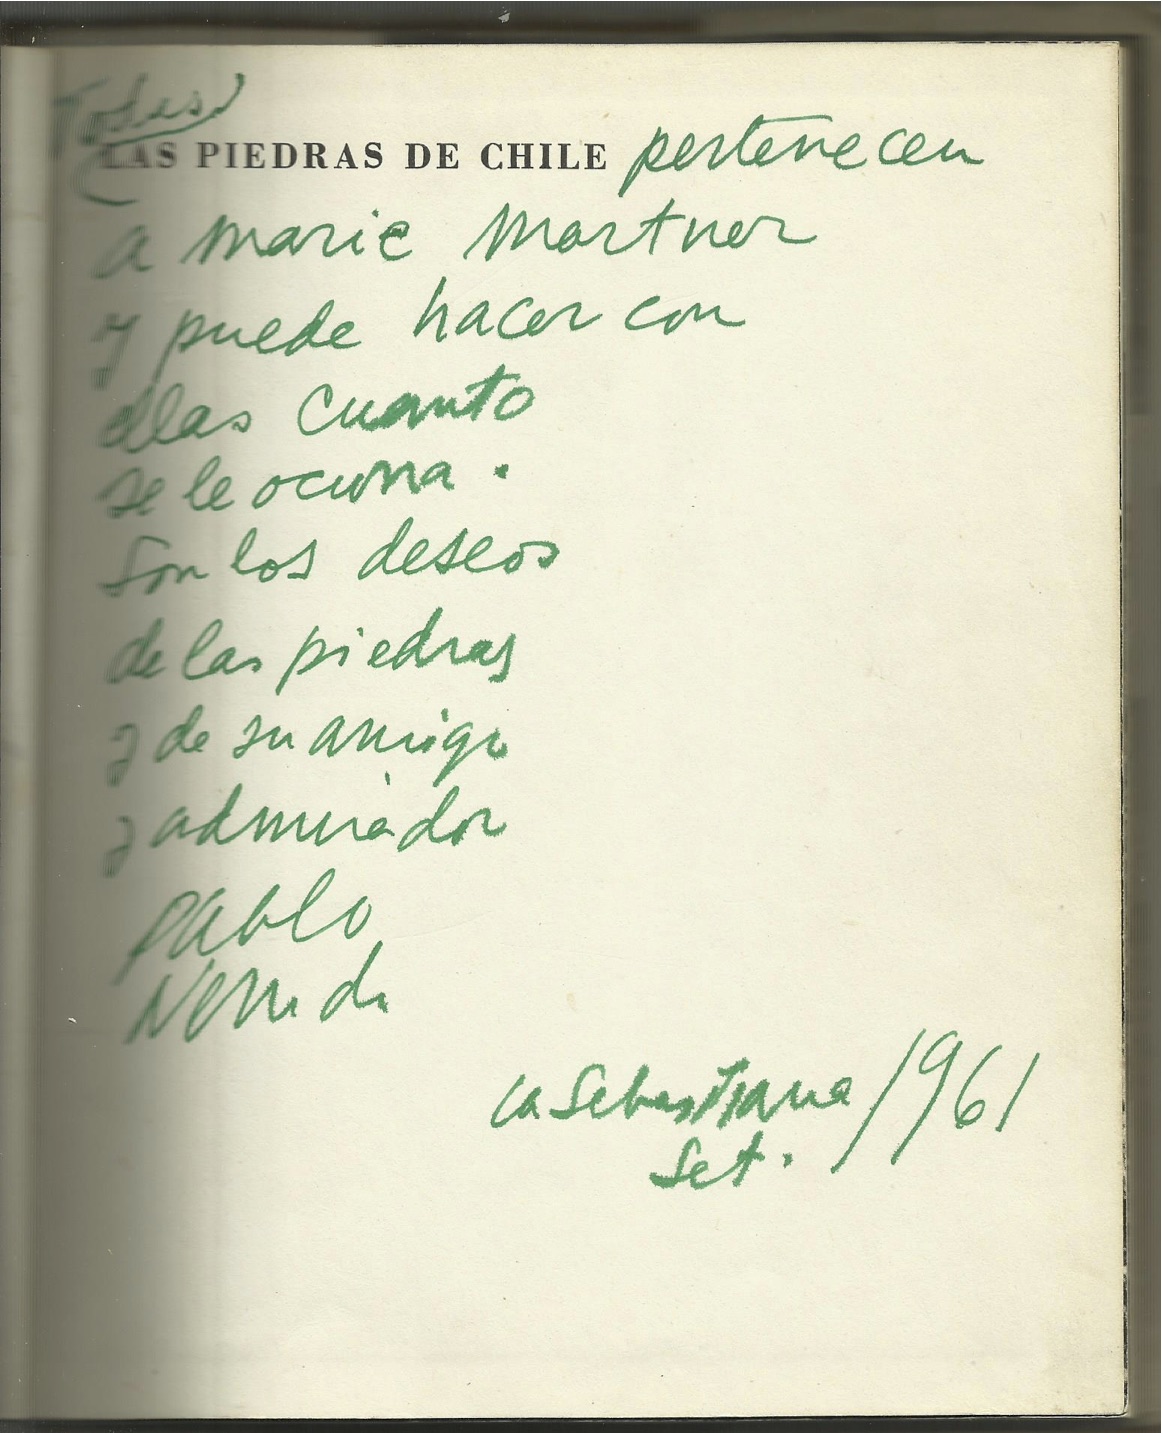 Todas
LAS PIEDRAS DE CHILE pertenecen
a Marie Martner
y puede hacer con
ellas cuanto
se le ocurra.
Son los deseos
de las piedras
y de su amigo
y admirador
Pablo
Neruda
La Sebastiana / 1961
Set.